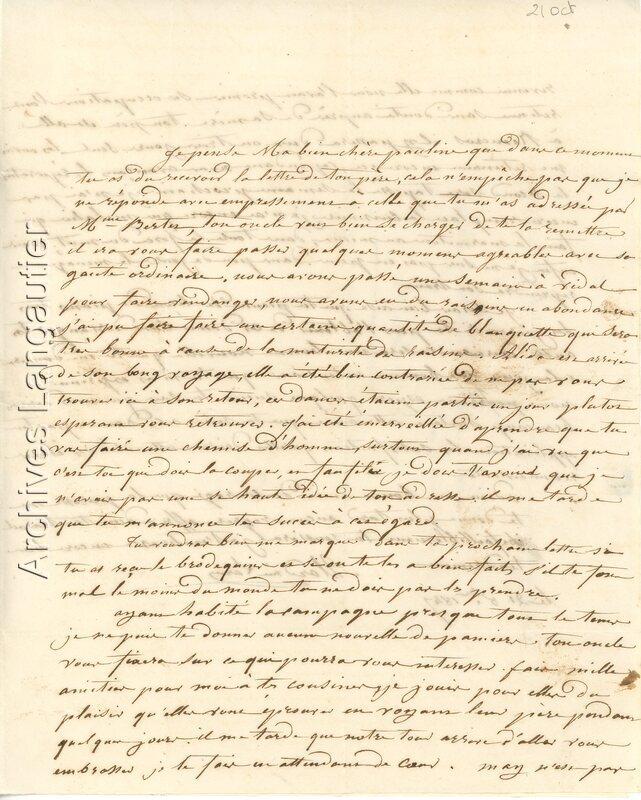 21 oct
Je pense Ma bien chère pauline que dans ce moment
tu as du recevoir la lettre de ton père, cela n'empêche pas que je
ne réponde avec empressement a celle que tu m'as adressée par
Mme Bertes, ton oncle veut bien se charger de te la remettre
il ira vous faire passer quelques momens agreables avec sa
gaité ordinaire. nous avons passé une semaine à vidal
pour faire vendange, nous avons eu du raisin en abondance
j'ai pu faire faire une certaine quantité de blanquette qui sera
très bonne à cause de la maturité des raisins. Alida est arrivée
de son long voyage, elle a été bien contrariée de ne pas vous
trouver ici à son retour, ces dames étaient parties un jour plutot
esperant vous retrouver. j'ai été émerveillée d'aprendre que tu
vas faire une chemise d'homme surtout quand j'ai vu que
c'est toi qui dois la couper, je dois t'avouer que je
n'avais pas une si haute idée de ton adresse, il me tarde
que tu m'annonce tes succès à cet égard.
Tu voudras bien me marquer dans ta prochaine lettre si
tu as reçu les brodequins et si on te les a bien faits, s'ils te font
mal le moins du monde tu ne dois pas les prendre.
ayant habité la campagne presque tout le tems
je ne puis te donner aucune nouvelle de pamiers. ton oncle
vous fixera sur ce qui pourra vous interesser fais mille
amitiés pour moi à tes cousines, je jouis pour elles du
plaisir qu'elles vont éprouver en voyant leur père pendant
quelques jours. il me tarde que notre tour arrive d'aller vous
embrasser je le fais en attendant de cœur. n'est pas
Archives Langautier